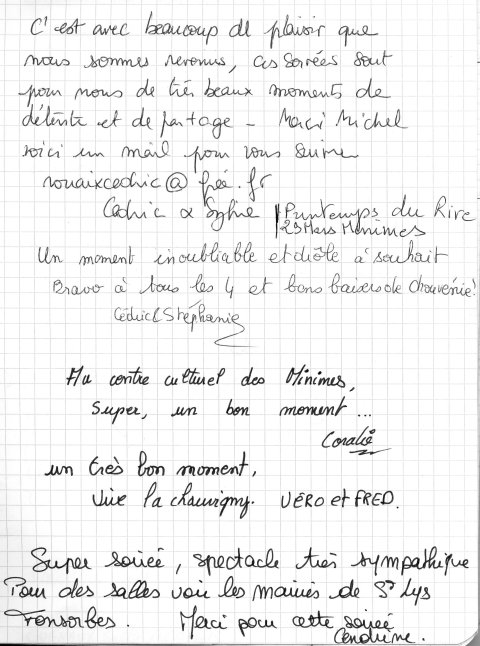 C'est avec beaucoup de plaisir que
nous sommes revenus, ces soirées sont
pour nous de très beaux moments de
détente et de partage - Merci Michel
voici un mail pour vous suivre
rouaixcedric@free.fr
Cédric & Sylvie
Printemps du Rire
29 Mars Minimes
Un moment inoubliable et drôle à souhait
Bravo à tous les 4 et bons baisers de
Cédric & Stéphanie
Au centre culturel des Minimes,
Super, un bon moment ...
Coralie
un très bon moment,
Vive la chauvigny. VÉRO et FRED.
Super soirée, spectacle très sympathique
Pour des salles voir les mairies de St Lys
Fonsorbes. Merci pour cette soirée